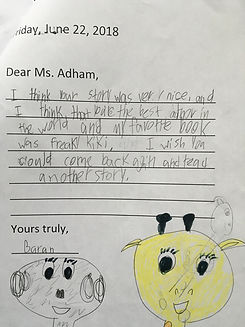 Friday, June 22, 2018
Dear Ms. Adham,
I think your story was very nice, and
I think that you're the best author in
the world and my favorite book
was freaky Kiki. I wish you
would come back again and read
another story.
Yours truly,
Baran